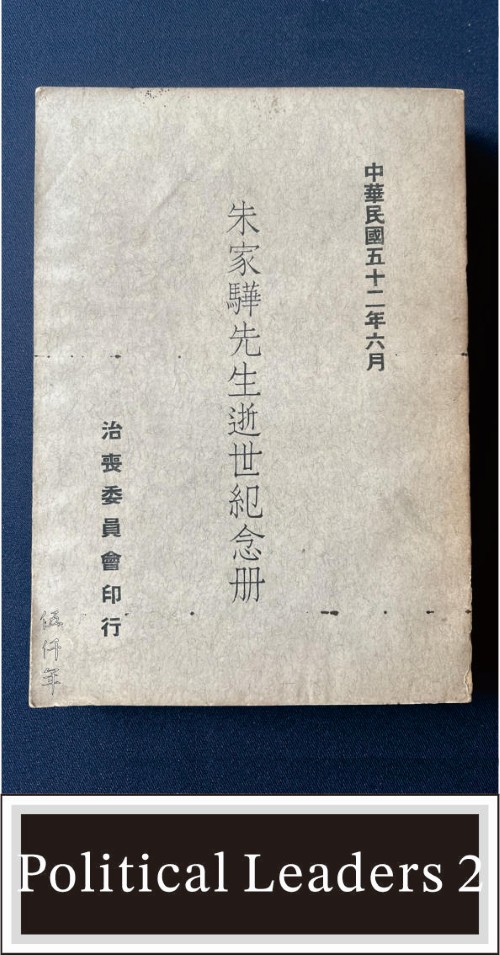 中華民國五十二年六月
朱家驊先生逝世紀念册
治喪委員會印行
伍仟年
Political Leaders 2